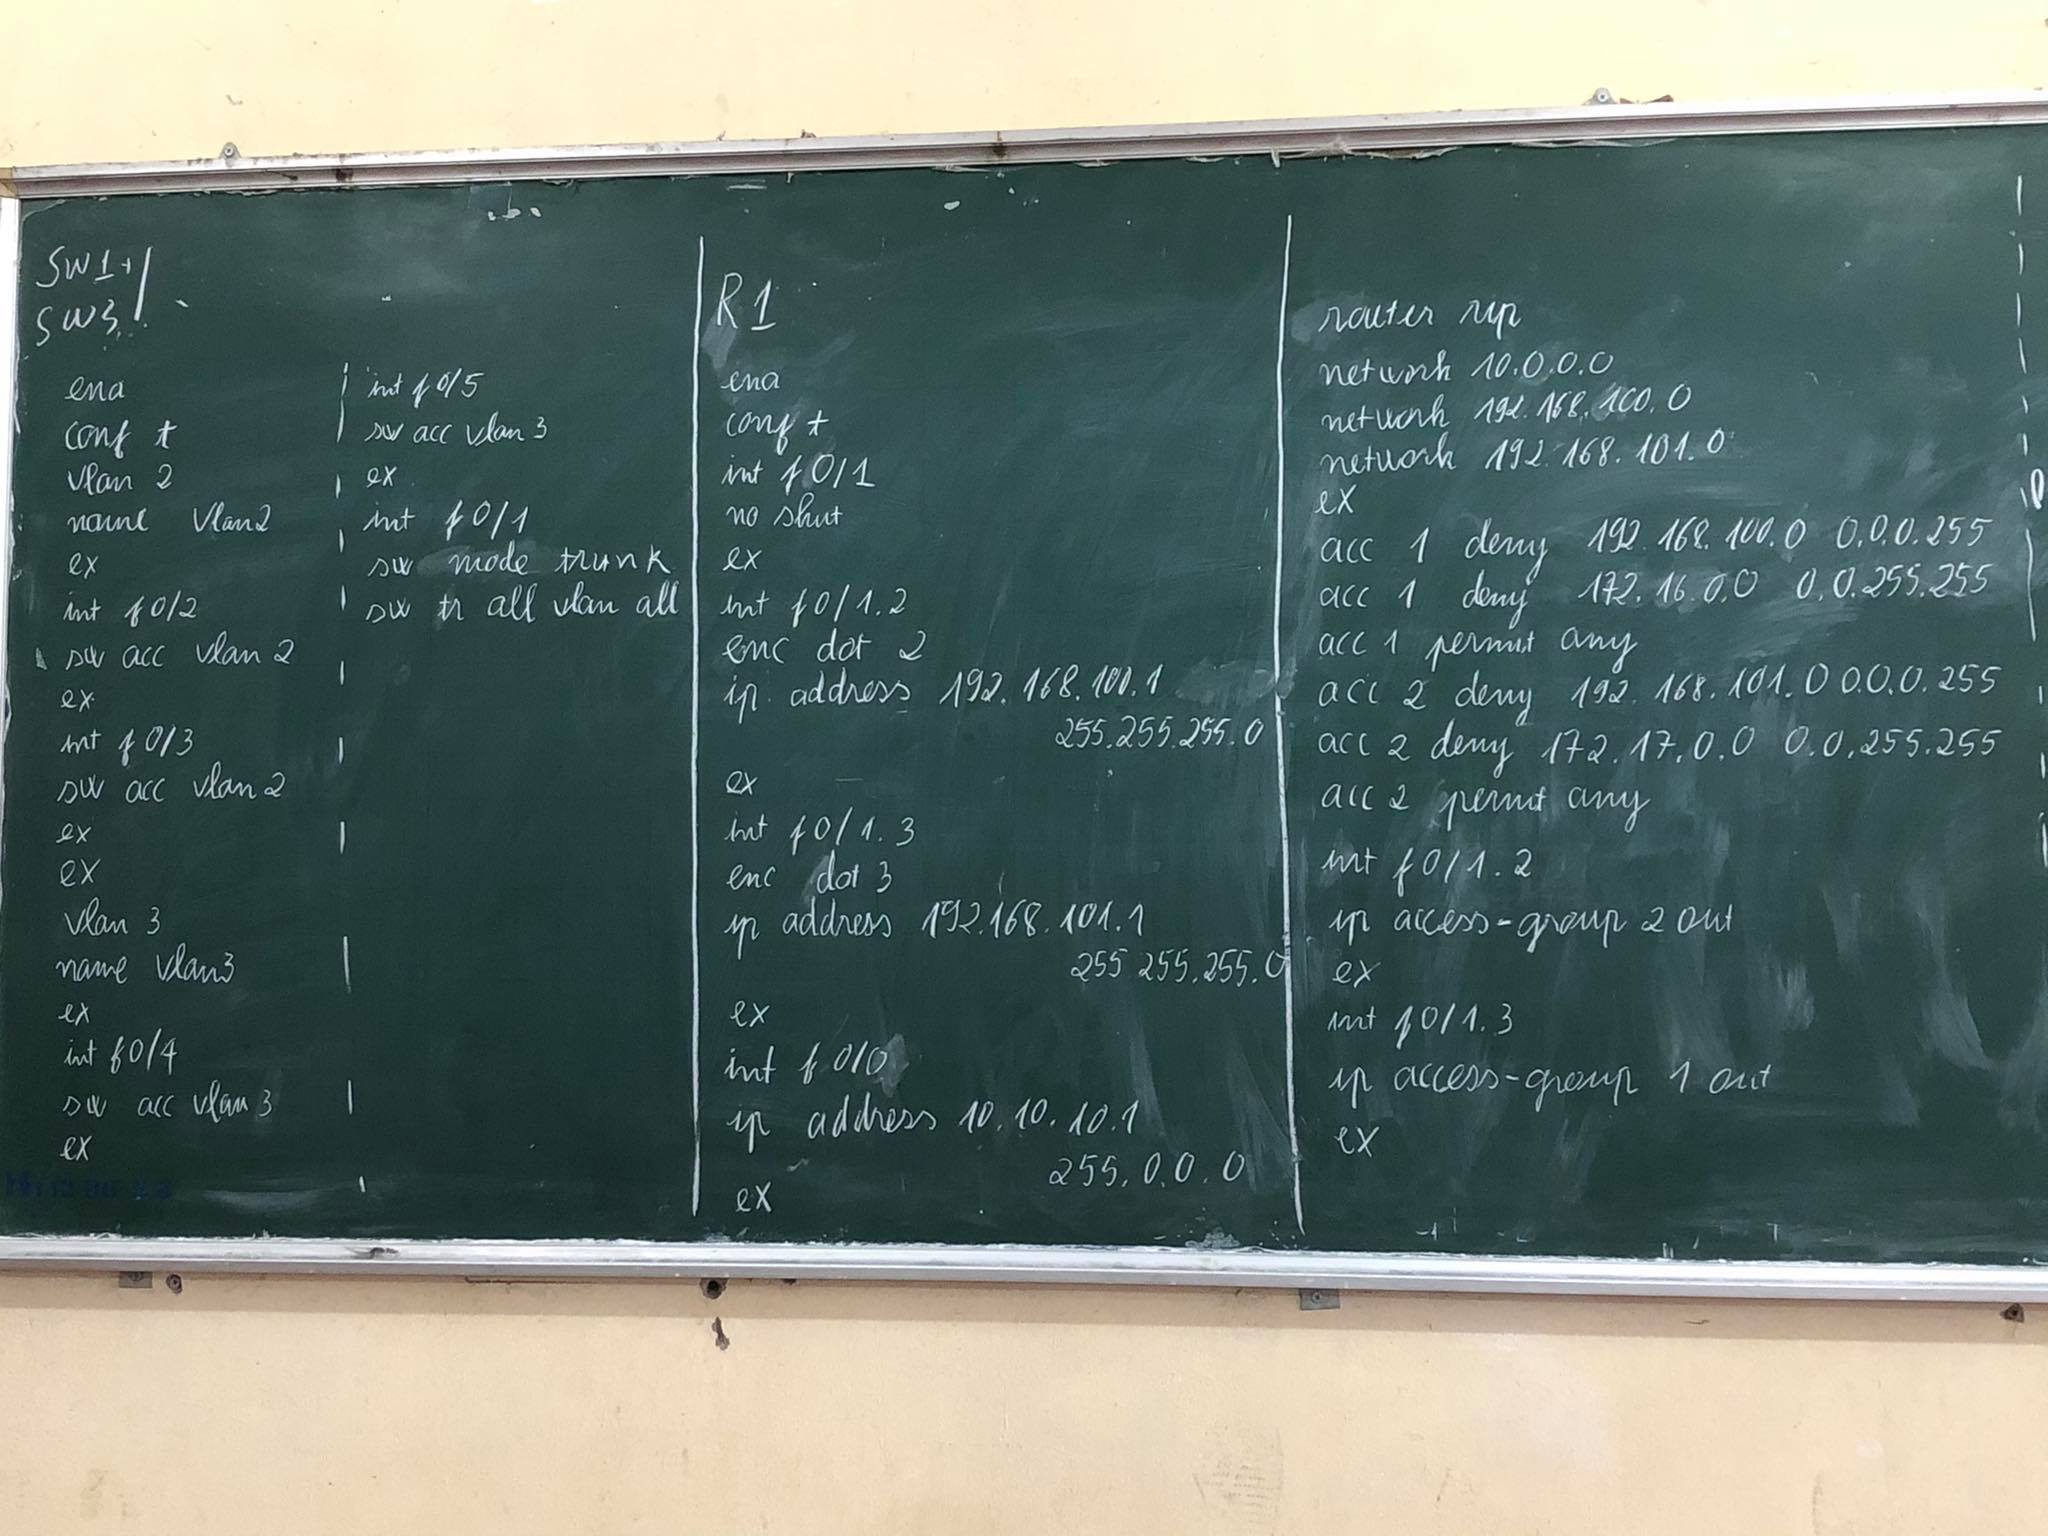 SW1 +
SW3
ena
conf t
vlan 2
name Vlan2
ex
int f0/2
sw acc vlan 2
ex
int f0/3
sw acc vlan 2
ex
ex
vlan 3
name vlan3
ex
int f0/4
sw acc vlan 3
ex
int f0/5
sw acc vlan 3
ex
int f0/1
sw mode trunk
sw tr all vlan all
R1
ena
conf t
int f0/1
no shut
ex
int f0/1.2
enc dot 2
ip address 192.168.100.1
255.255.255.0
ex
int f0/1.3
enc dot 3
ip address 192.168.101.1
255 255.255.0
ex
int f0/0
ip address 10.10.10.1
255.0.0.0
ex
router rip
network 10.0.0.0
network 192.168.100.0
network 192.168.101.0
ex
acc 1 deny 192.168.100.0 0.0.0.255
acc 1 deny 172.16.0.0 0.0.255.255
acc 1 permit any
acc 2 deny 192.168.101.0 0.0.0.255
acc 2 deny 172.17.0.0 0.0.255.255
acc 2 permit any
int f0/1.2
ip access-group 2 out
ex
int f0/1.3
ip access-group 1 out
ex